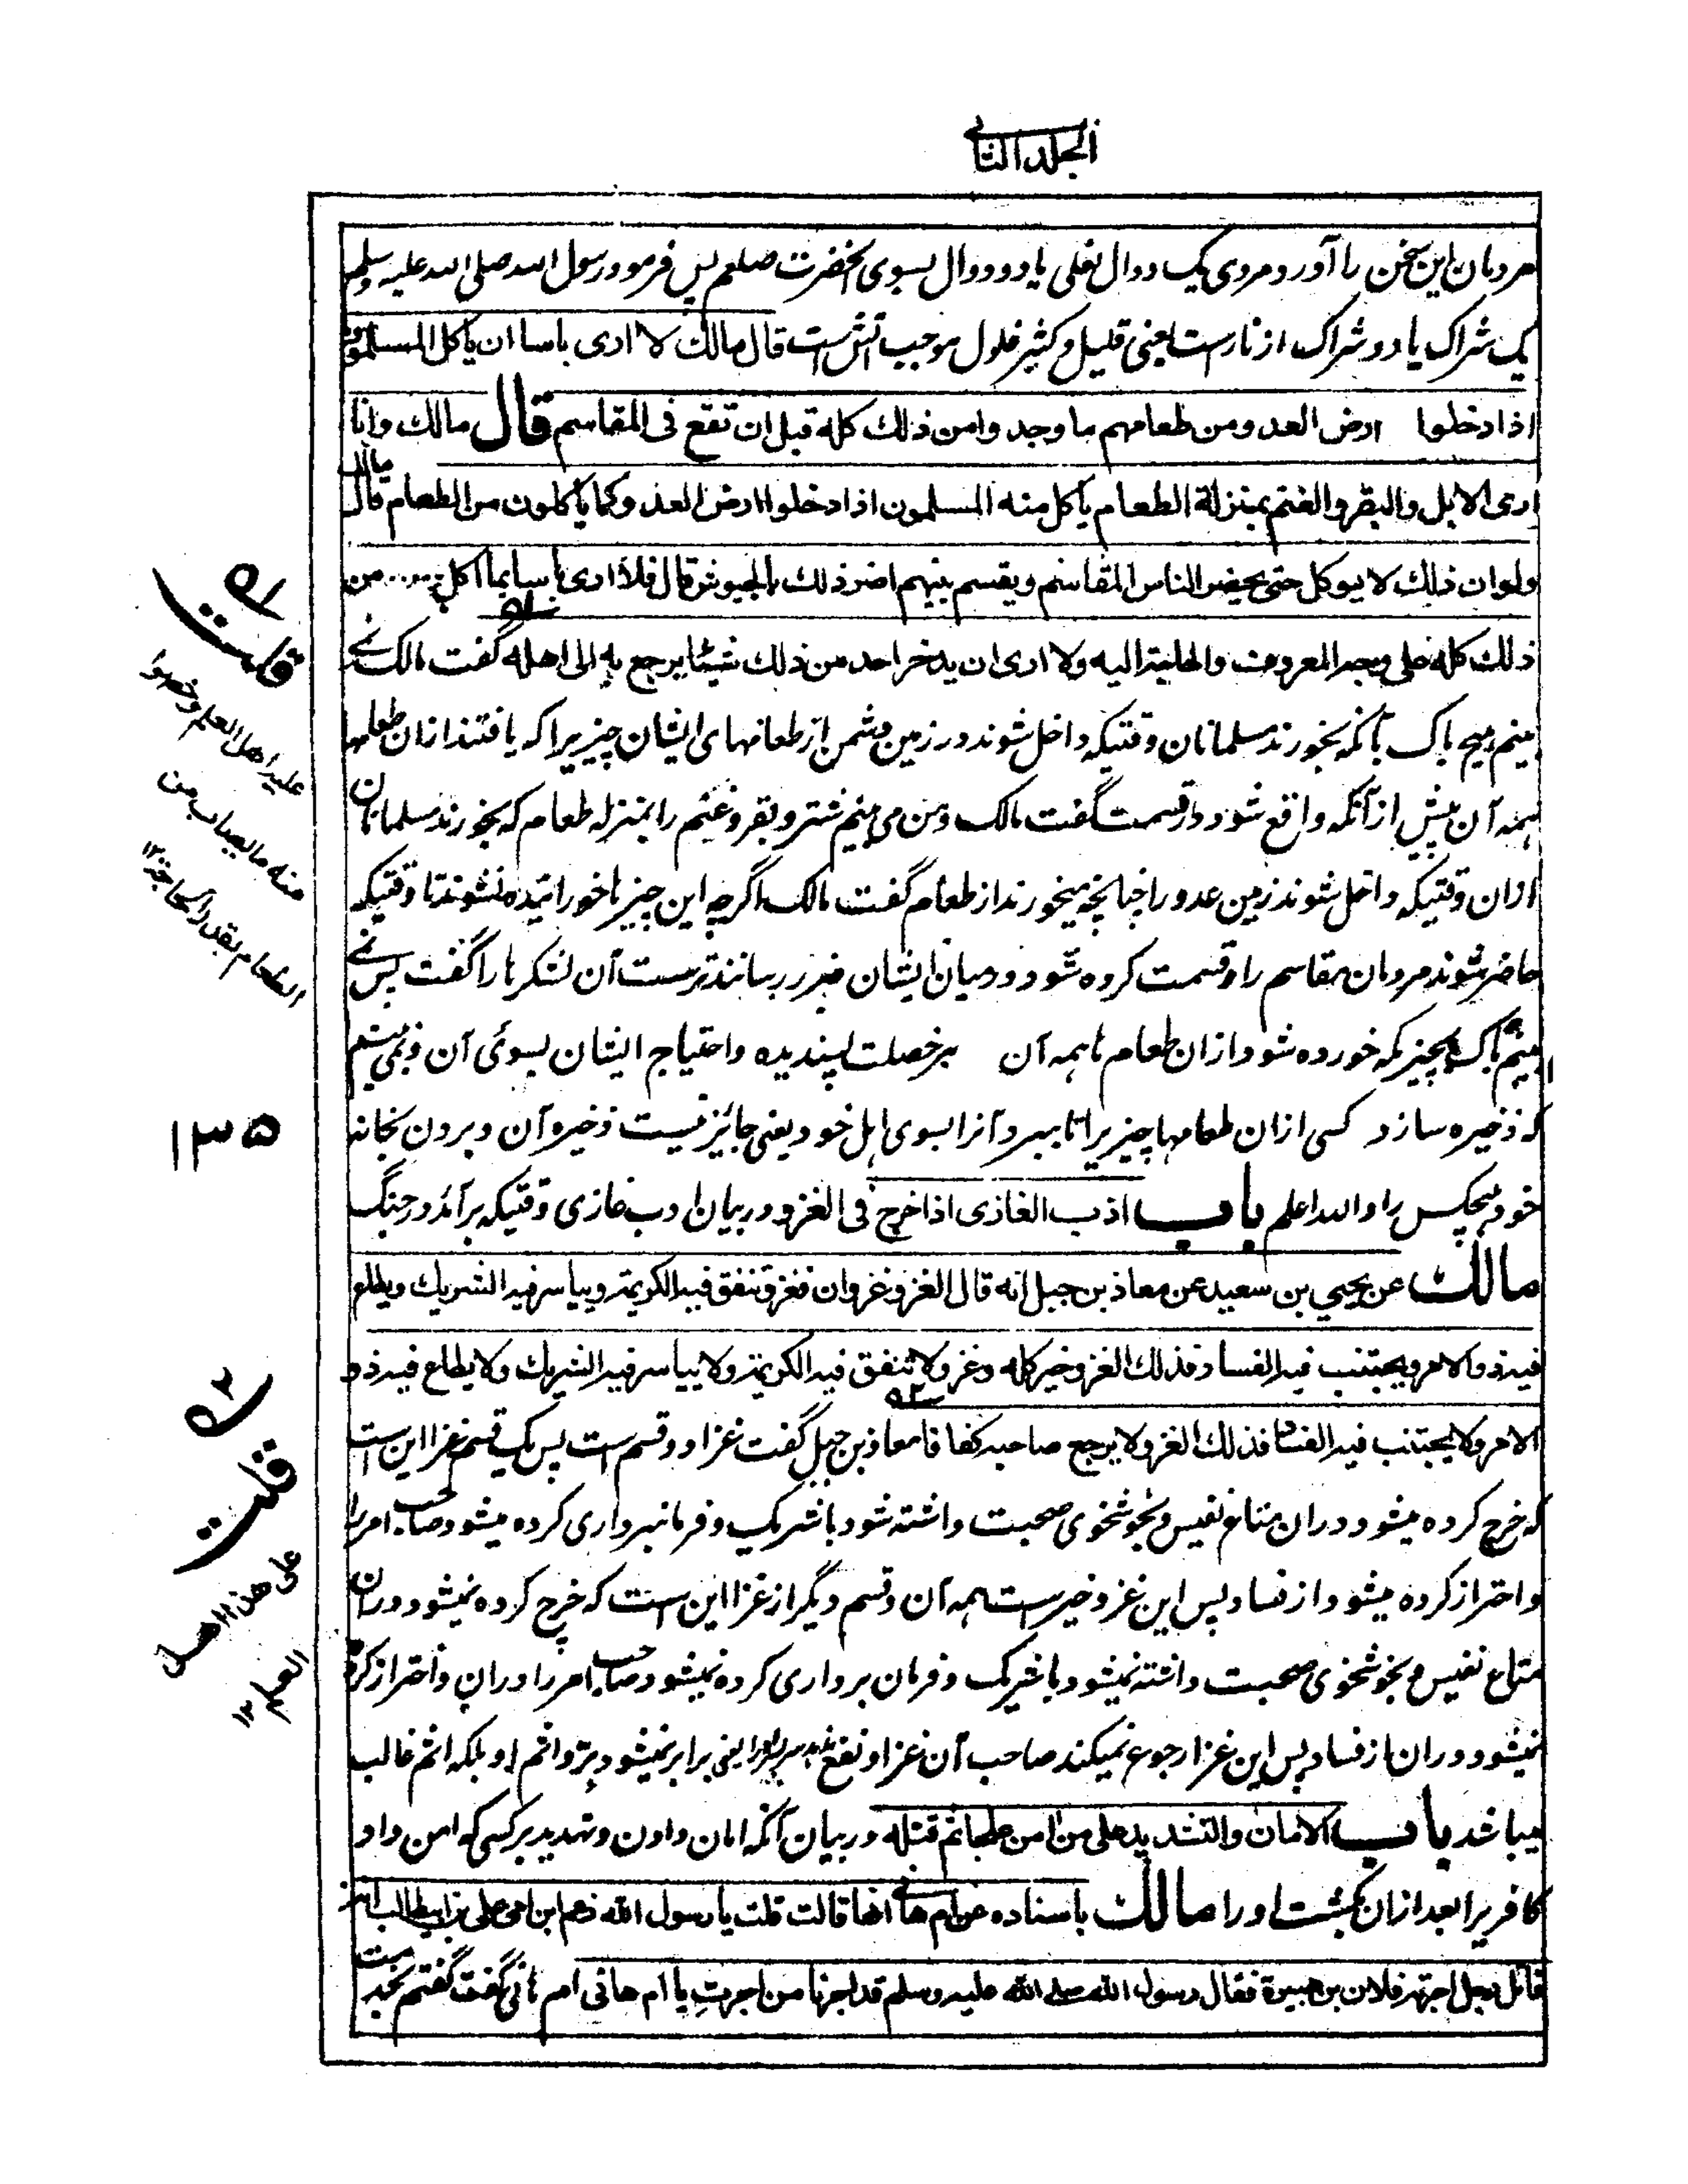 المجلد الثانے
مردمان این سخن را آورد مردی یک دوال نعلی یا دو دوال بسوی آنحضرت صلعم پس فرمود رسول الله صلی الله علیه وسلم
یک شراک یا دو شراک از نار است یعنی قلیل و کثیر غلول موجب آتش است قال مالك لا ارى باسا ان ياكل المسلمون
اذا دخلوا ارض العدو من طعامهم ما وجدوا من ذلك كله قبل ان تقع فى المقاسم قال مالك وانا
ارى الابل والبقر والغنم بمنزلة الطعام ياكل منه المسلمون اذا دخلوا ارض العدو كما ياكلون من الطعام قال مالك
ولو ان ذلك لا يوكل حتى يحضر الناس المقاسم ويقسم بينهم اضر ذلك بالجيوش قال فلا ارى باسا بما اكل من
ذلك كله على وجه المعروف والحاجة اليه ولا ارى ان يدخر احد من ذلك شيئا يرجع به الى اهله گفت مالک نے
بینم هیچ باک بآنکه بخورند مسلمانان وقتیکه داخل شوند در زمین دشمن از طعامهای ایشان چیزیرا که یافتند ازان طعامها
همه آن پیش از آنکه واقع شود در قسمت گفت مالک و من می بینم شتر و بقر و غنم را بمنزله طعام که بخورند مسلمانان
ازان وقتیکه داخل شوند زمین عدو را چنانچه میخورند از طعام گفت مالک اگرچه این چیزها خورانیده نشوند تا وقتیکه
حاضر شوند مردمان مقاسم را و قسمت کرده شود در میان ایشان ضرر رساننده است آن لشکرها را گفت پس نے
بینم باک بچیزیکه خورده شود ازان طعام ها همه آن بر خصلت پسندیده و احتیاج ایشان بسوئی آن و نمی بینم
که ذخیره سازد کسی ازان طعامها چیزیرا تا ببرد آنرا بسوی اهل خود یعنی جائز نیست ذخیره آن و بردن بخانه
خود هیچکس را والله اعلم باب ادب الغازى اذا خرج فى الغزو در بیان ادب غازی وقتیکه برآئد در جنگ
مالك عن يحيى بن سعيد عن معاذ بن جبل انه قال الغزو غزوان فغزو تنفق فيه الكريمة ويياسر فيه الشريك ويطاع
فيه ذو الامر ويجتنب فيه الفساد فذلك الغزو خير كله وغزو لا تنفق فيه الكريمة ولا يياسر فيه الشريك ولا يطاع فيه ذو
الامر ولا يجتنب فيه الفساد فذلك الغزو لا يرجع صاحبه كفافا معاذ بن جبل گفت غزا دو قسم است پس یک قسم غزا این است
که خرج کرده میشود دران متاع نفیس و بخوشخوی صحبت داشته شود با شریک و فرمانبرداری کرده میشود صاحب امر را
و احتراز کرده میشود از فساد پس این غزو خیر است همه آن و قسم دیگر از غزا این است که خرج کرده نمیشود دران
متاع نفیس و بخوشخوی صحبت داشته نمیشود با شریک و فرمان برداری کرده نمیشود صاحب امر را دران و احتراز کرده
نمیشود دران از فساد پس این غزا رجوع نمیکند صاحب آن غزا و نفع یعنی برابر نمیشود بزو اثم او بلکه اثم غالب
میباشد باب الامان والتشديد على من امن علجا ثم قتله در بیان آنکه امان دادن و تهدید بر کسی که امن داد
کافریرا بعد ازان بکشت او را مالك باسناده عن ام هانے انها قالت قلت يا رسول الله زعم ابن امى على بن ابيطالب انه
قاتل رجل اجرته فلان بن هبيرة فقال رسول الله صلے الله عليه وسلم قد اجرنا من اجرتِ يا ام هانى ام هانی گفت گفتم بخدمت
قلت
عليه اهل العلم وخصوا
منه ما يصاب من
الطعام بقدر الحاجة ١٢
١٣٥
قلت
على هذا اهل
العلم ١٢